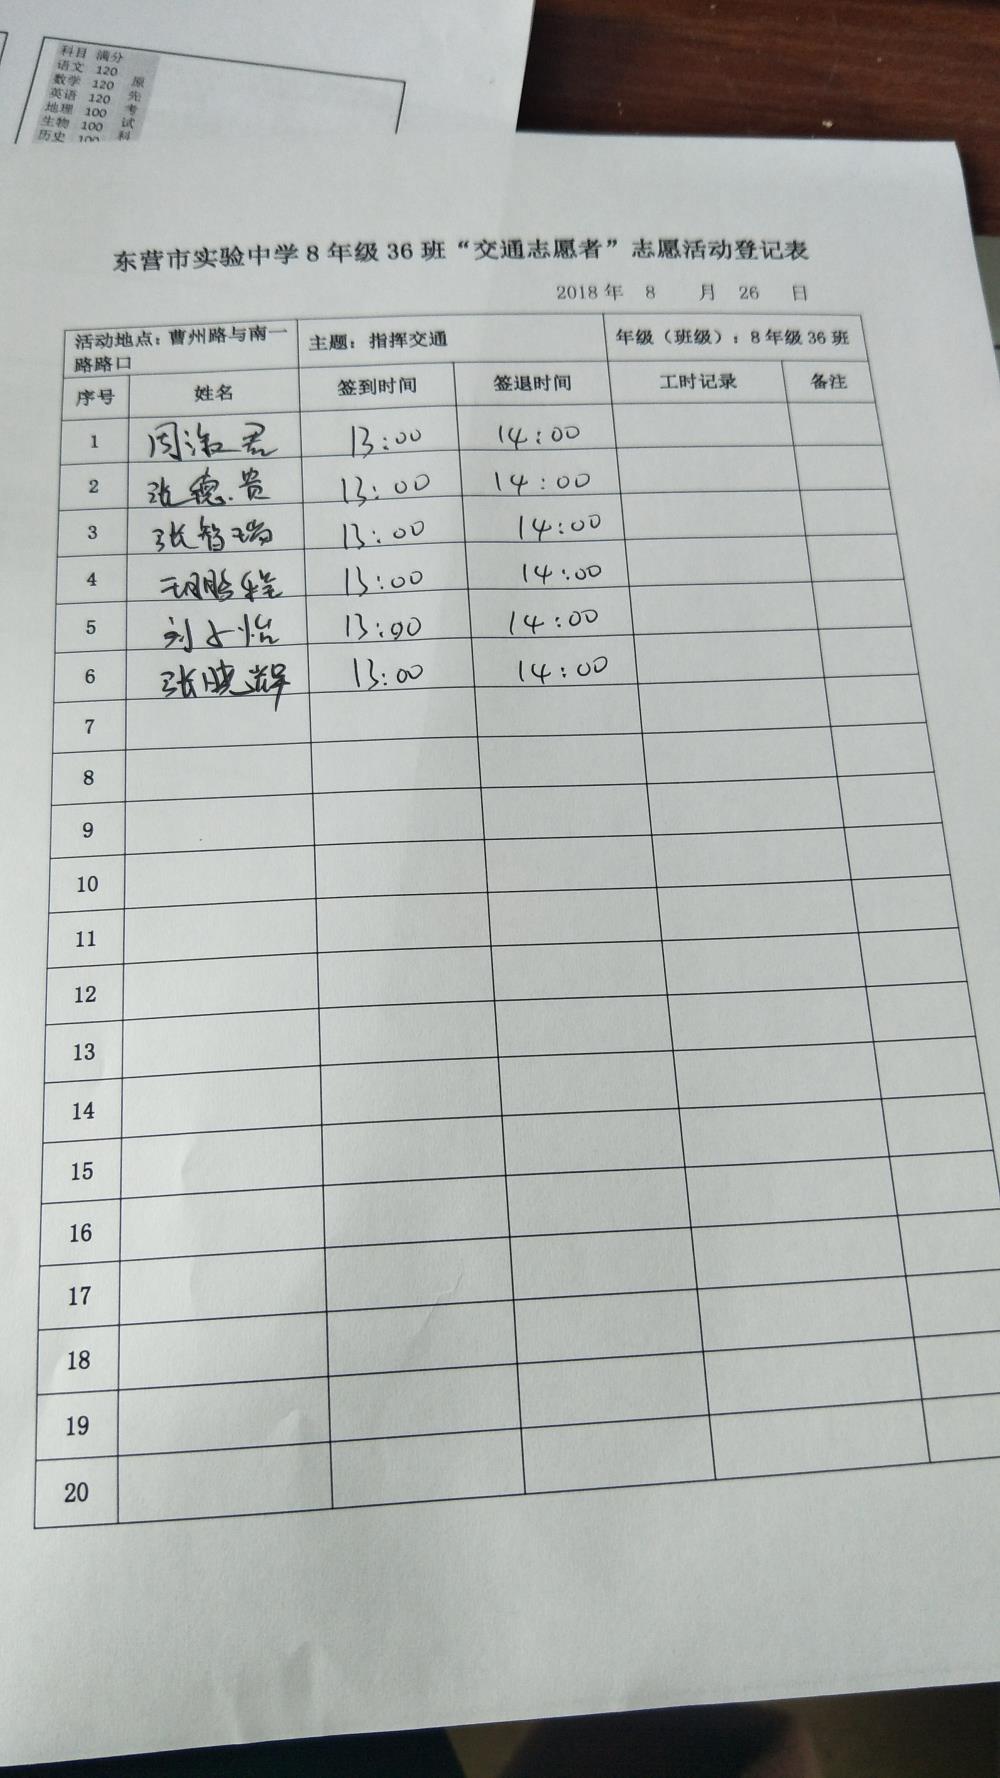 科目 满分
语文 120
数学 120 原
英语 120 先
地理 100 考
生物 100 试
历史 100 科
东营市实验中学8年级36班“交通志愿者”志愿活动登记表
2018年 8 月 26 日
活动地点：曹州路与南一路路口 主题：指挥交通 年级（班级）：8年级36班
序号 姓名 签到时间 签退时间 工时记录 备注
1 周 君 13:00 14:00
2 张德贵 13:00 14:00
3 张智瑞 13:00 14:00
4 程 13:00 14:00
5 刘 怡 13:00 14:00
6 张晓辉 13:00 14:00
7
8
9
10
11
12
13
14
15
16
17
18
19
20